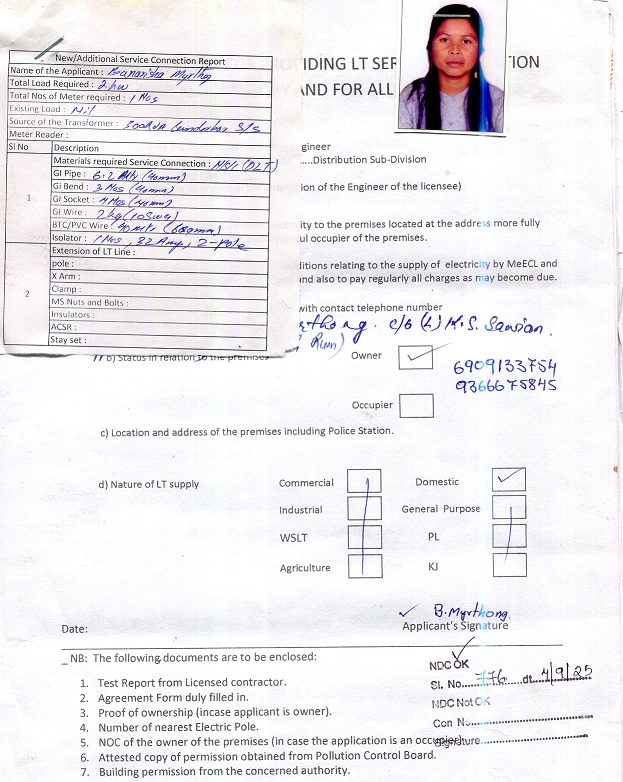 New/Additional Service Connection Report
Name of the Applicant :
Total Load Required : 2 kw
Total Nos of Meter required : 1 Nos
Existing Load : Nil
Source of the Transformer :
Meter Reader :
Sl No
Description
1
Materials required Service Connection :
GI Pipe : 6.2 Mts (40mm)
GI Bend : 3 Nos (40mm)
GI Socket : 4 Nos (40mm)
GI Wire : 2kg (10swg)
BTC/PVC Wire :
Isolator : 1 Nos, 32 Amp, 2-pole
2
Extension of LT Line :
pole :
X Arm :
Clamp :
MS Nuts and Bolts :
Insulators :
ACSR :
Stay set :
VIDING LT SER
ION
AND FOR ALL
gineer
.....Distribution Sub-Division
ion of the Engineer of the licensee)
ity to the premises located at the address more fully
ul occupier of the premises.
ditions relating to the supply of electricity by MeECL and
and also to pay regularly all charges as may become due.
with contact telephone number
rthong. c/o (L) K.S. Sawian.
b) Status in relation to the premises
Owner
6909133754
9366675845
Occupier
c) Location and address of the premises including Police Station.
d) Nature of LT supply
Commercial
Domestic
Industrial
General Purpose
WSLT
PL
Agriculture
KJ
B. Myrthong.
Date:
Applicant's Signature
NB: The following documents are to be enclosed:
NDC OK
1. Test Report from Licensed contractor.
Sl. No. 776 dt. 4/9/25
2. Agreement Form duly filled in.
NDC Not OK
3. Proof of ownership (incase applicant is owner).
Con No.
4. Number of nearest Electric Pole.
5. NOC of the owner of the premises (in case the application is an occupier)
Signature
6. Attested copy of permission obtained from Pollution Control Board.
7. Building permission from the concerned authority.